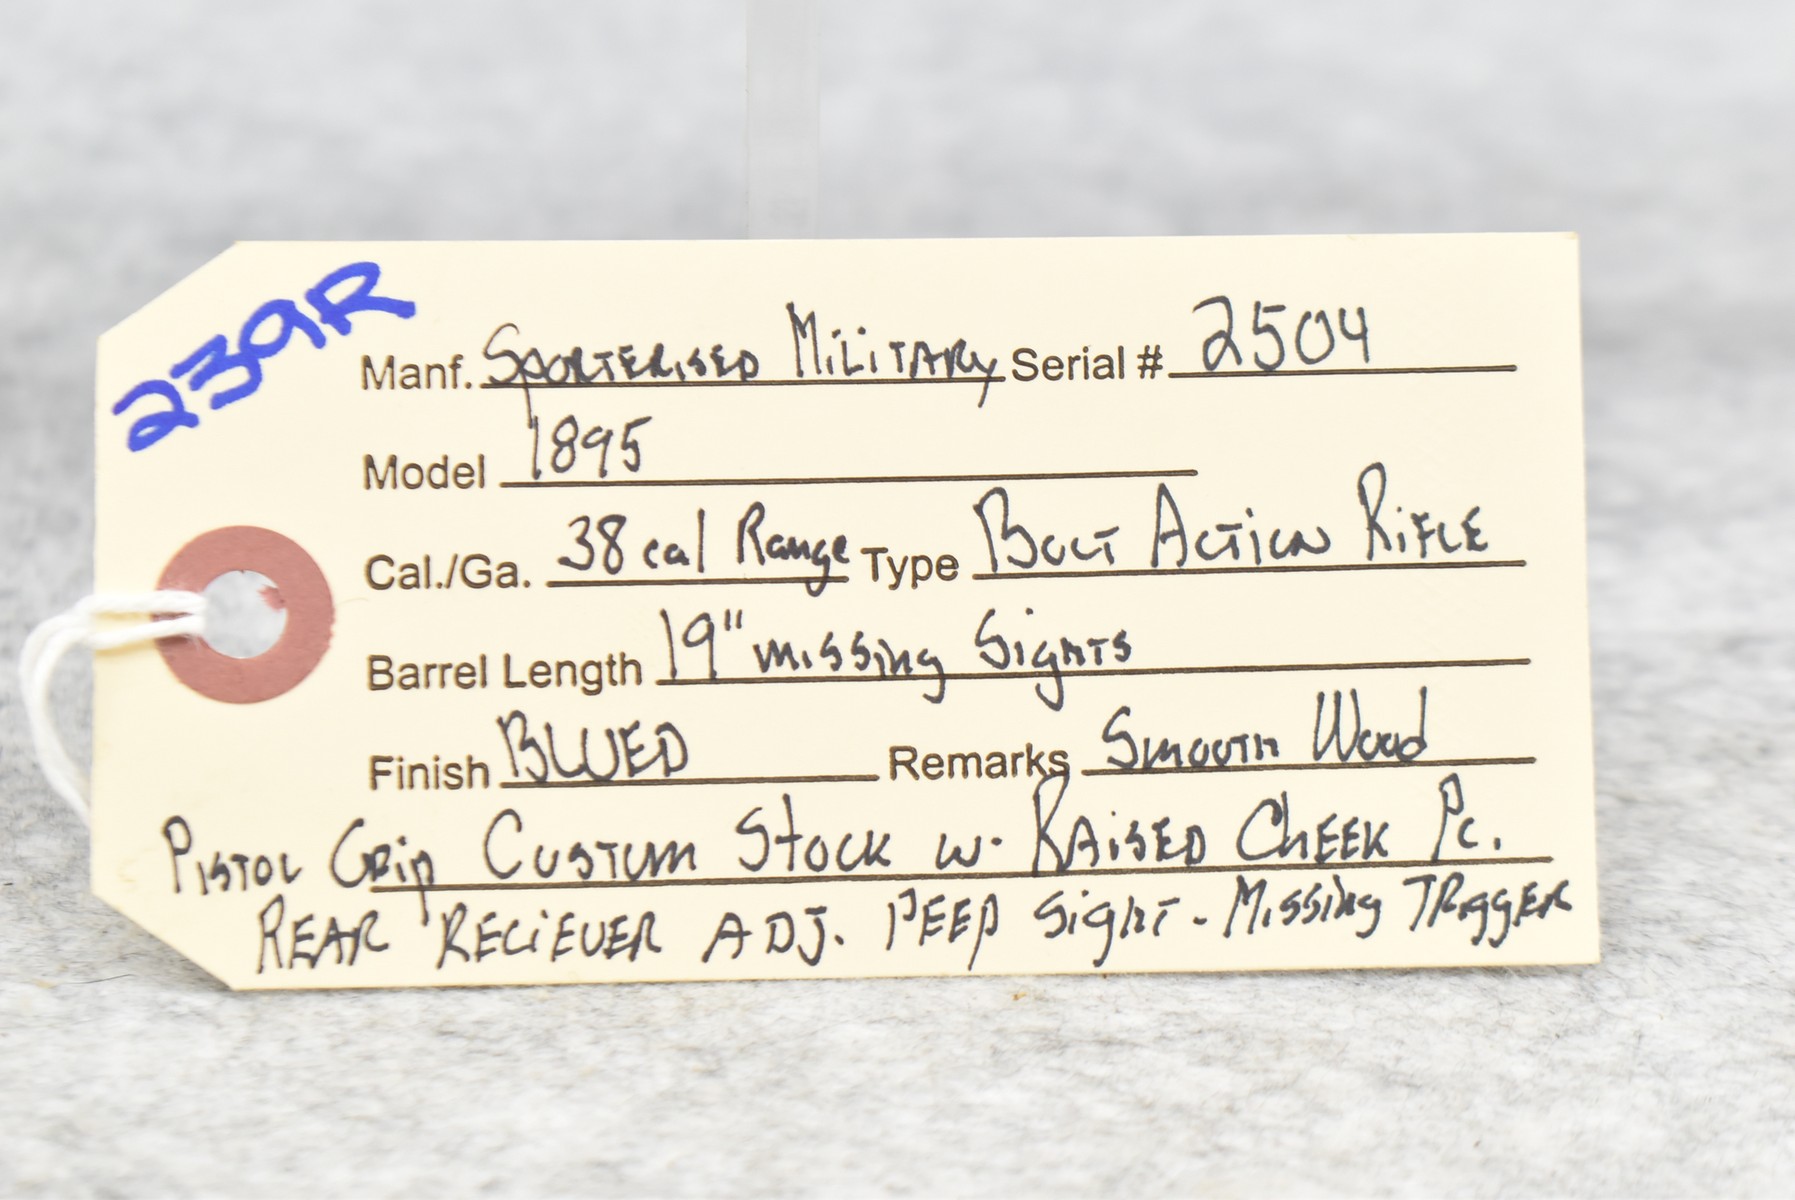 239R
Manf. Sporterised Military Serial # 2504
Model 1895
Cal./Ga. 38 cal Range Type Bolt Action Rifle
Barrel Length 19" missing Sights
Finish BLUED Remarks Smooth Wood
Pistol Grip Custom Stock w. Raised Cheek Pc.
Rear Reciever ADJ. Peep Sight - Missing Trigger